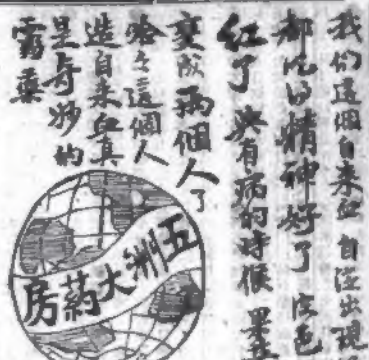 我们這個自来血自從出現
都吃的精神好了 皮色
红了 與有病的時候 畧
變成两個人了
哈哈這個人
造自来血真
是奇妙的
靈藥
五洲大藥房